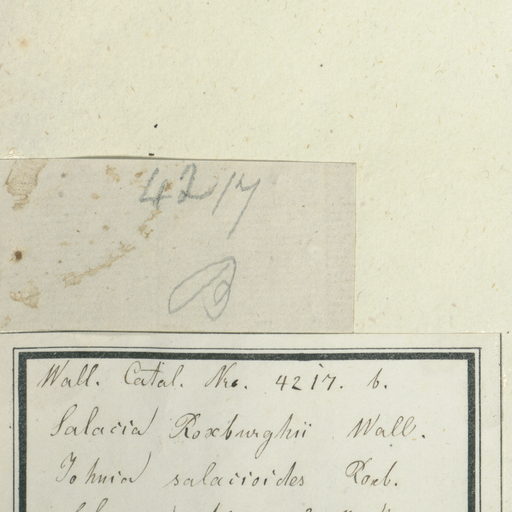 4217
B
Wall. Catal. No. 4217. b.
Salacia Roxburghii Wall.
Johnia salacioides Roxb.